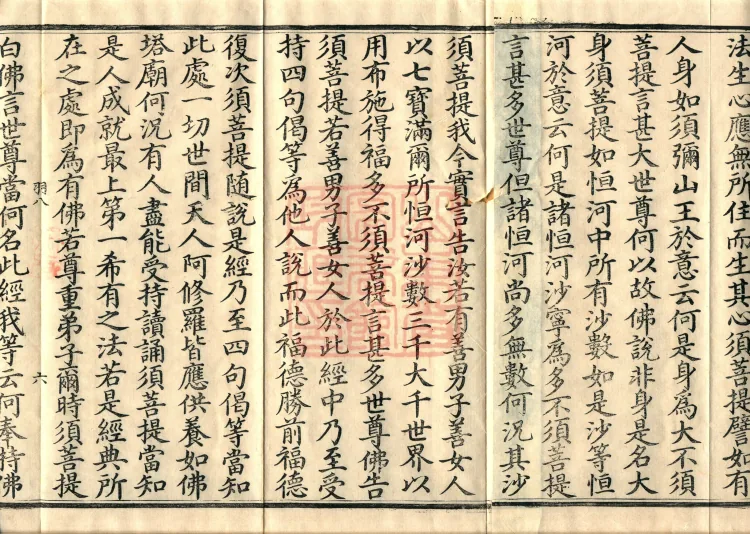 法生心應無所住而生其心須菩提譬如有
人身如須彌山王於意云何是身為大不須
菩提言甚大世尊何以故佛說非身是名大
身須菩提如恒河中所有沙數如是沙等恒
河於意云何是諸恒河沙寧為多不須菩提
言甚多世尊但諸恒河尚多無數何況其沙
須菩提我今實言告汝若有善男子善女人
以七寶滿爾所恒河沙數三千大千世界以
用布施得福多不須菩提言甚多世尊佛告
須菩提若善男子善女人於此經中乃至受
持四句偈等為他人說而此福德勝前福德
復次須菩提隨說是經乃至四句偈等當知
此處一切世間天人阿修羅皆應供養如佛
塔廟何況有人盡能受持讀誦須菩提當知
是人成就最上第一希有之法若是經典所
在之處即為有佛若尊重弟子爾時須菩提
羽八 六
白佛言世尊當何名此經我等云何奉持佛